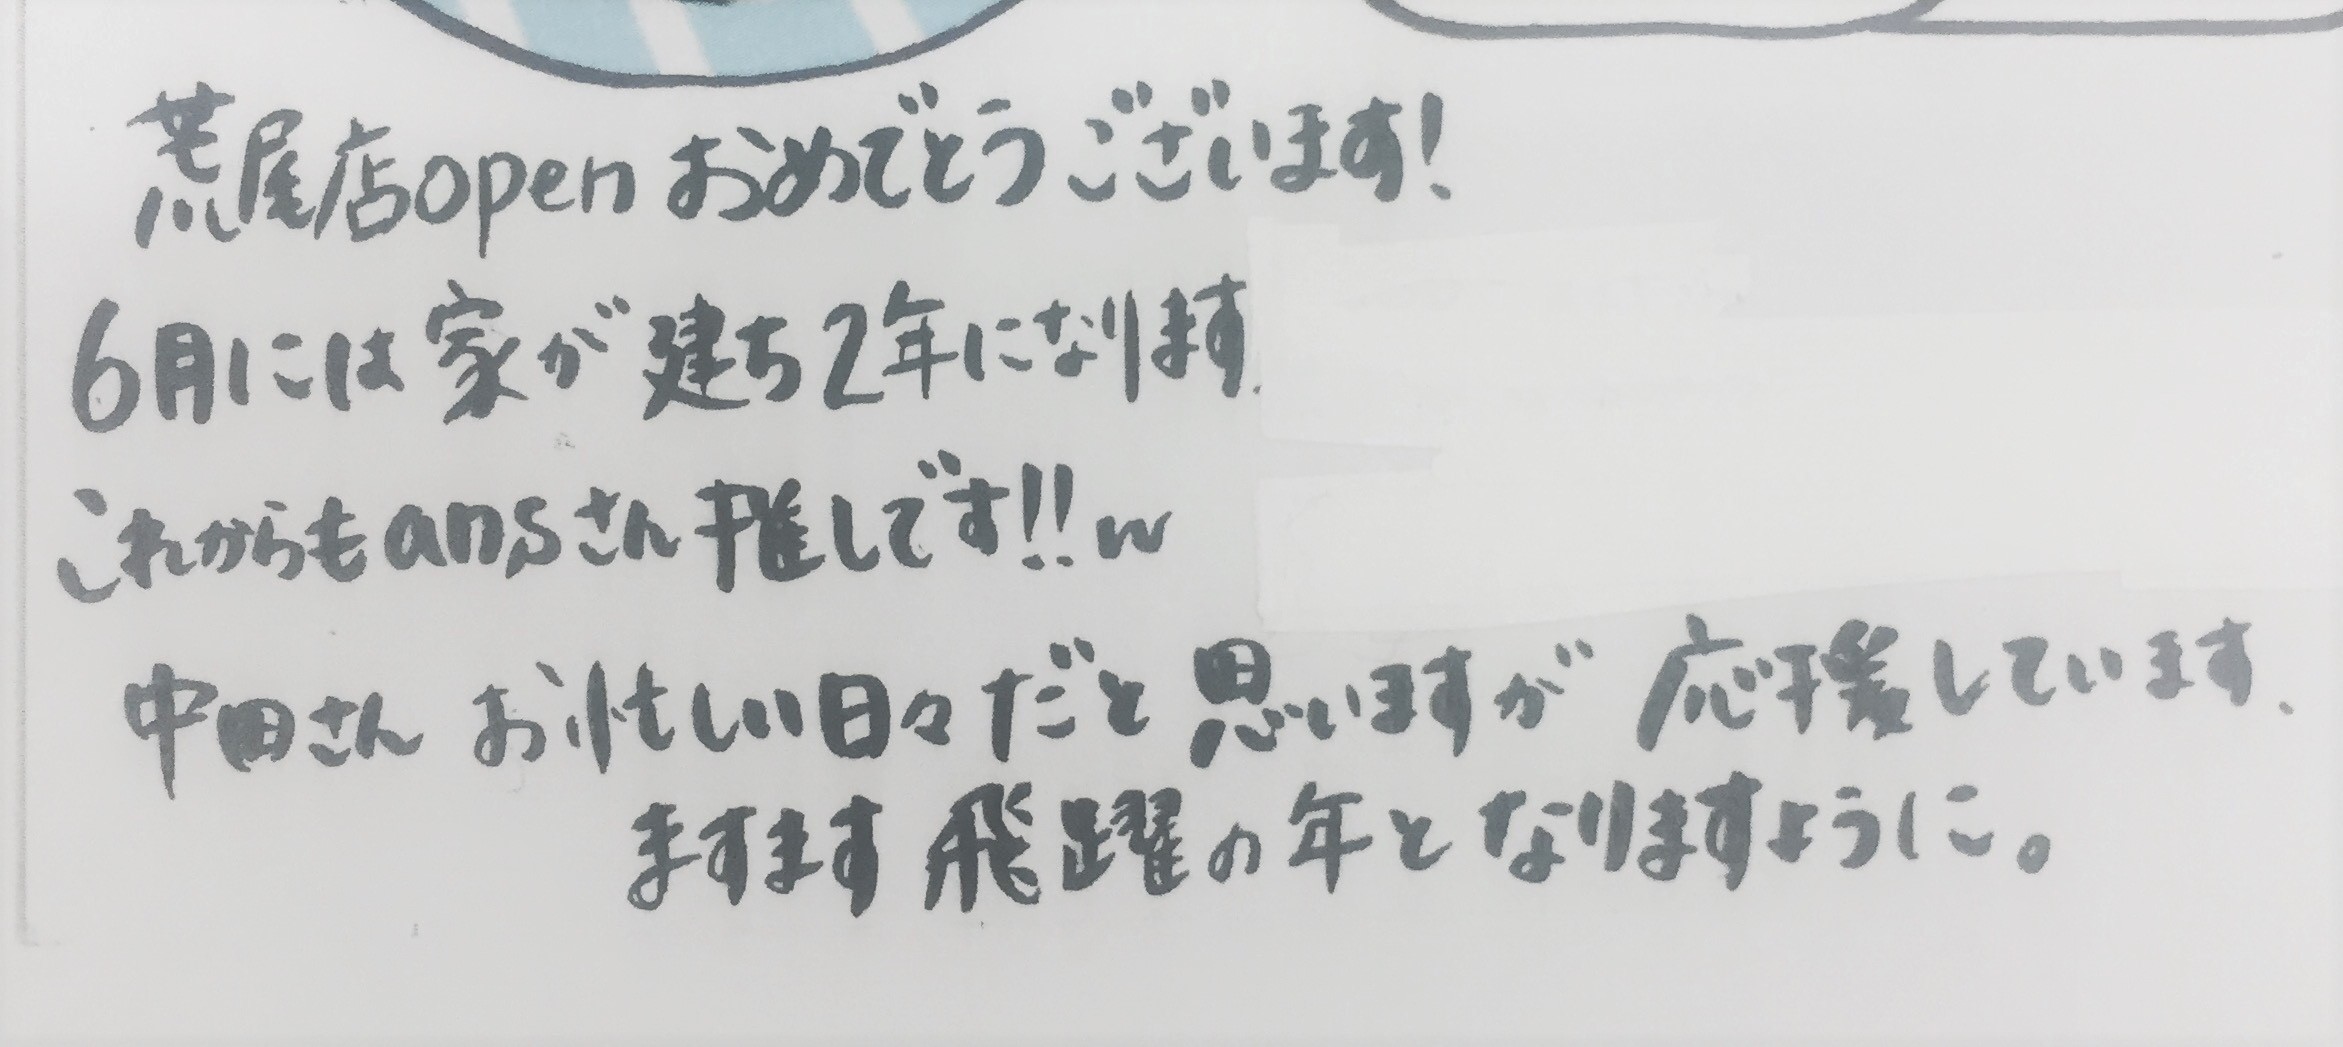 荒尾店openおめでとうございます!
6月には家が建ち2年になります.
これからもansさん推しです!!w
中田さん お忙しい日々だと思いますが 応援しています.
ますます飛躍の年となりますように。